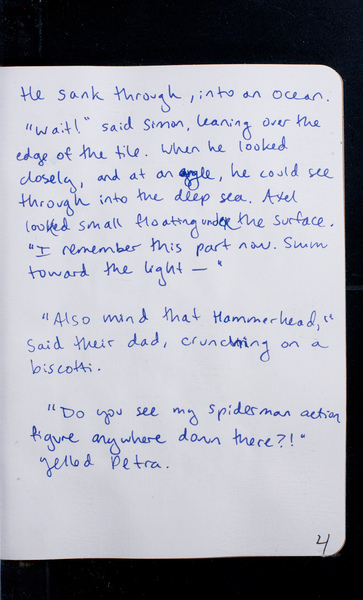 He sank through, into an ocean.
"Wait!" said Simon, leaning over the
edge of the tile. When he looked
closely, and at an angle, he could see
through into the deep sea. Axel
looked small floating under the surface.
"I remember this part now. Swim
toward the light — "
"Also mind that Hammerhead,"
said their dad, crunching on a
biscotti.
"Do you see my spiderman action
figure anywhere down there?!"
yelled Petra.
4